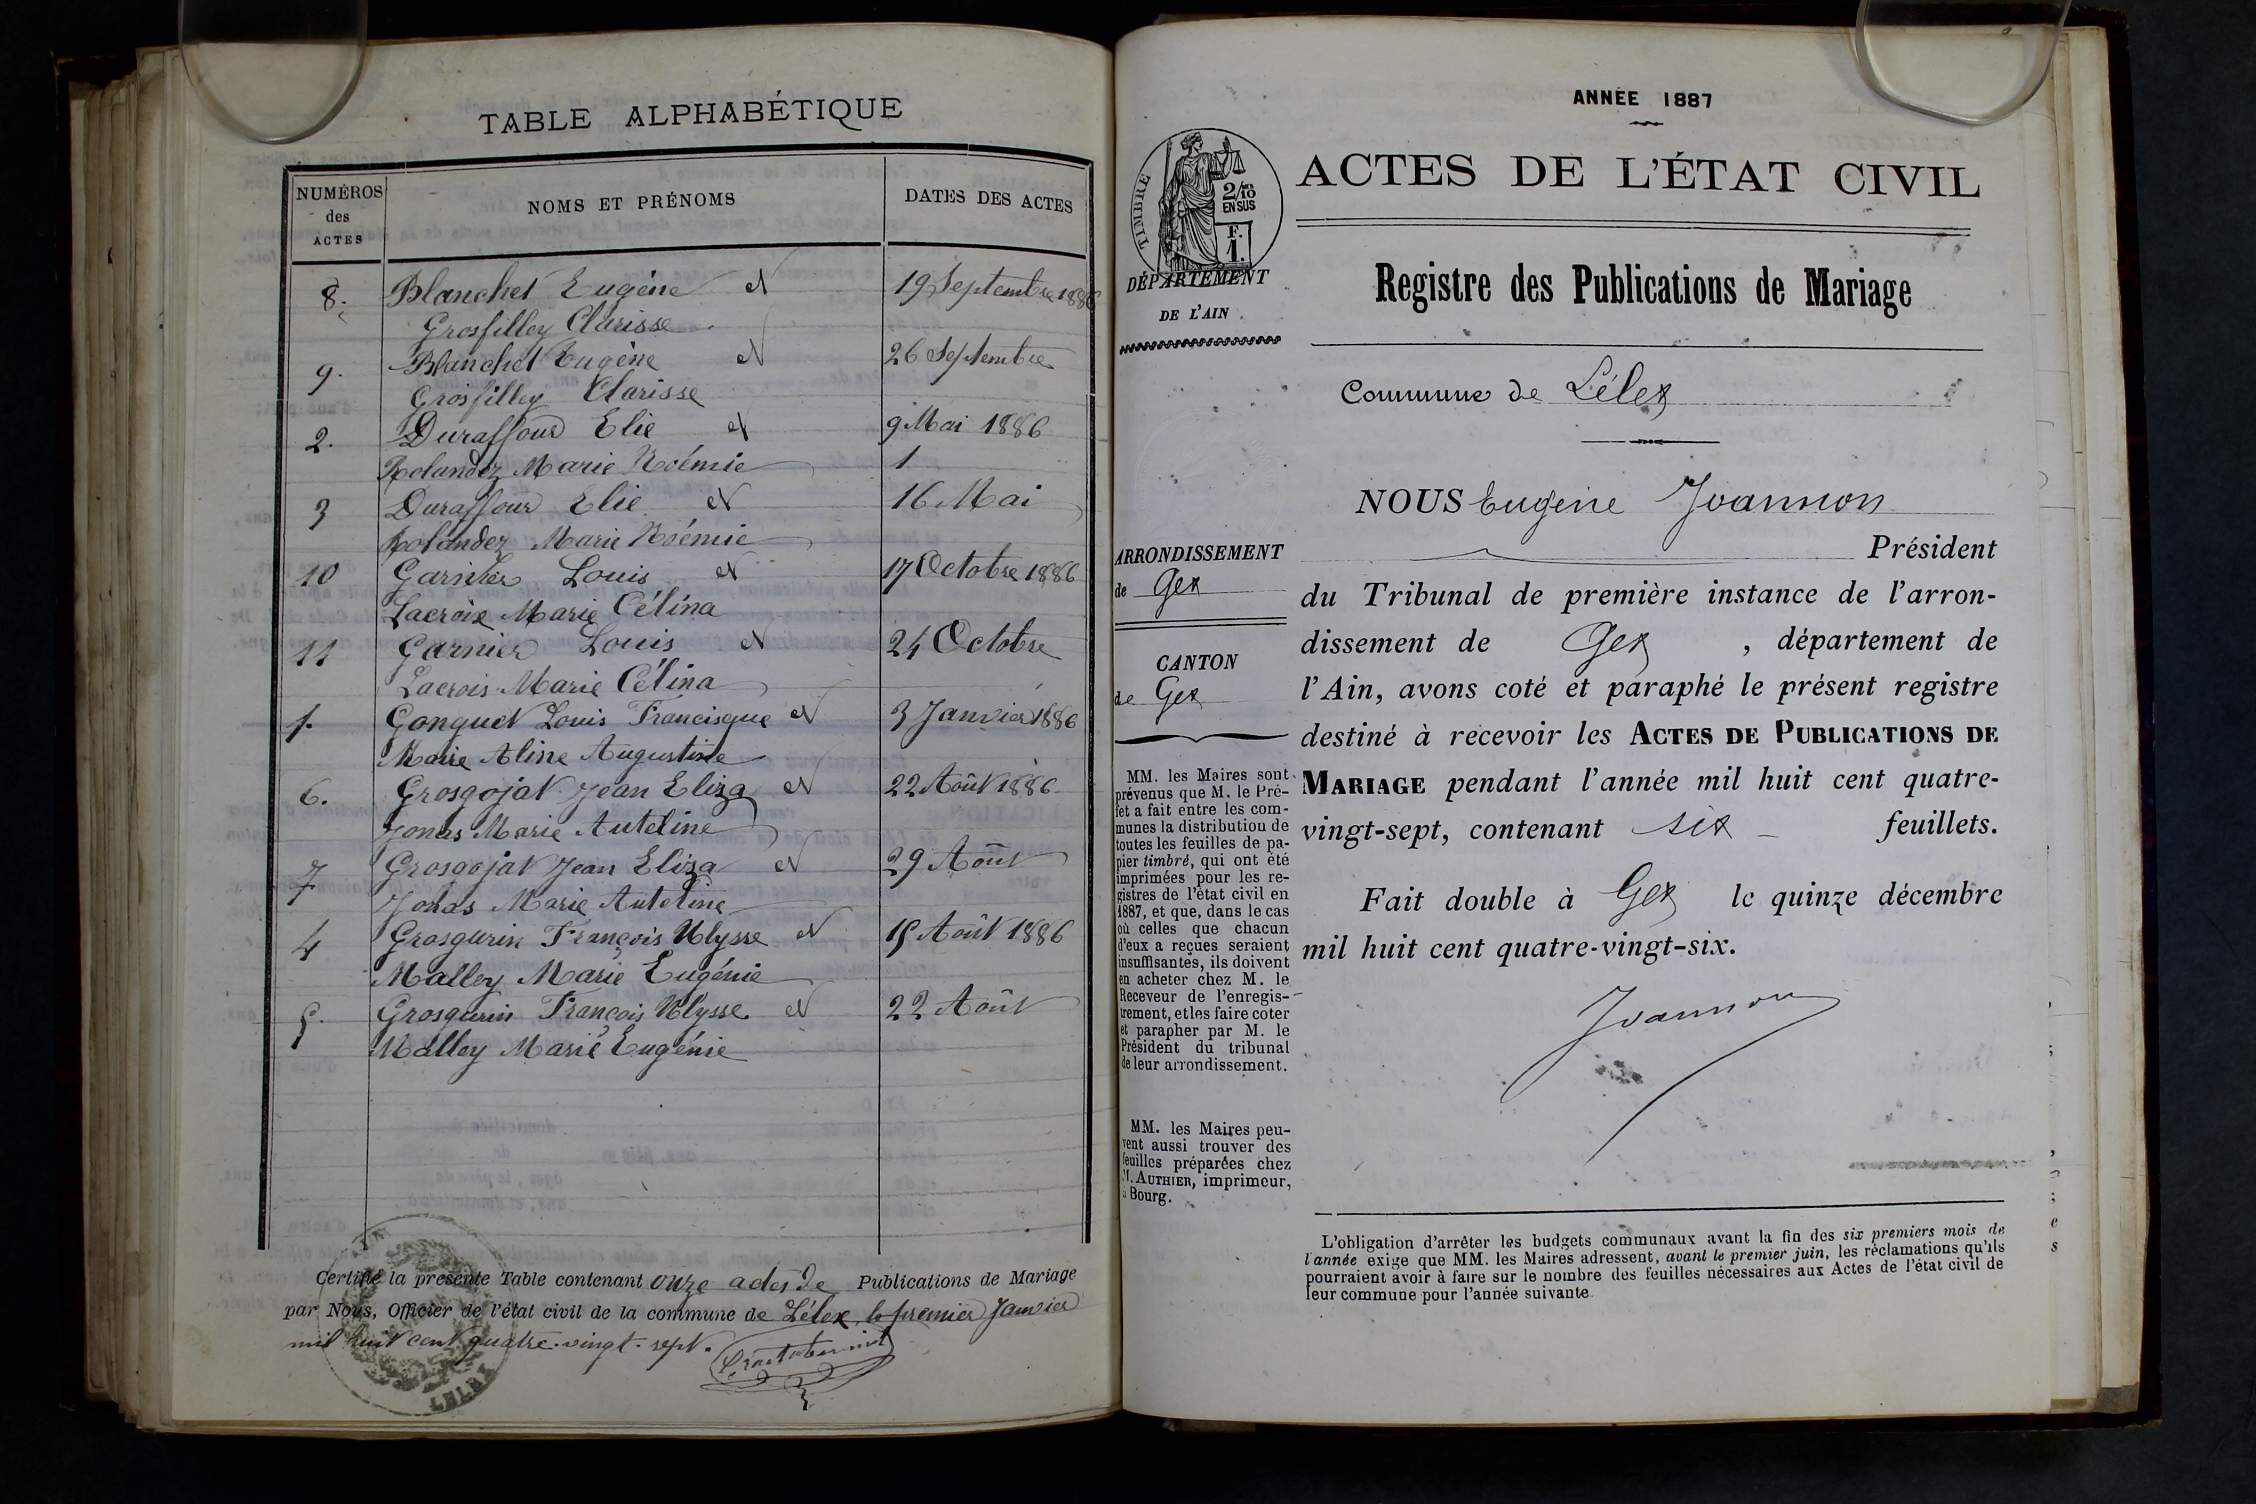 TABLE ALPHABÉTIQUE
NUMÉROS des ACTES NOMS ET PRÉNOMS DATES DES ACTES
8. Blanchet Eugène et 19 Septembre 1886
Grosfilley Clarisse
9. Blanchet Eugène et 26 Septembre
Grosfilley Clarisse
2. Duraffour Elie et 9 Mai 1886
Rolandez Marie Noémie 1
3 Duraffour Elie et 16 Mai
Rolandez Marie Noémie
10 Garnier Louis et 17 Octobre 1886
Lacroix Marie Célina
11 Garnier Louis et 24 Octobre
Lacroix Marie Célina
1. Gonguet Louis Francisque et 3 Janvier 1886
Marie Aline Augustine
6. Grosgojat Jean Eliza et 22 Août 1886
Jonas Marie Auteline
7 Grosgojat Jean Eliza et 29 Août
Jonas Marie Auteline
4 Grosgurin François Ulysse et 15 Août 1886
Malley Marie Eugénie
5. Grosgurin François Ulysse et 22 Août
Malley Marie Eugénie
Certifié la présente Table contenant onze actes de Publications de Mariage
par Nous, Officier de l'état civil de la commune de Lélex, le premier Janvier
mil huit cent quatre-vingt-sept.
LELEX
ANNÉE 1887
TIMBRE
2/10 EN SUS
F. 1.
ACTES DE L'ÉTAT CIVIL
DÉPARTEMENT
DE L'AIN
Registre des Publications de Mariage
Commune de Lélex
NOUS Eugène Joannon
Président
ARRONDISSEMENT
de Gex
CANTON
de Gex
du Tribunal de première instance de l'arron-
dissement de Gex, département de
l'Ain, avons coté et paraphé le présent registre
destiné à recevoir les ACTES DE PUBLICATIONS DE
MARIAGE pendant l'année mil huit cent quatre-
vingt-sept, contenant six feuillets.
Fait double à Gex le quinze décembre
mil huit cent quatre-vingt-six.
Joannon
MM. les Maires sont
prévenus que M. le Pré-
fet a fait entre les com-
munes la distribution de
toutes les feuilles de pa-
pier timbré, qui ont été
imprimées pour les re-
gistres de l'état civil en
1887, et que, dans le cas
où celles que chacun
d'eux a reçues seraient
insuffisantes, ils doivent
en acheter chez M. le
Receveur de l'enregis-
trement, et les faire coter
et parapher par M. le
Président du tribunal
de leur arrondissement.
MM. les Maires peu-
vent aussi trouver des
feuilles préparées chez
M. AUTHIER, imprimeur,
à Bourg.
L'obligation d'arrêter les budgets communaux avant la fin des six premiers mois de
l'année exige que MM. les Maires adressent, avant le premier juin, les réclamations qu'ils
pourraient avoir à faire sur le nombre des feuilles nécessaires aux Actes de l'état civil de
leur commune pour l'année suivante.